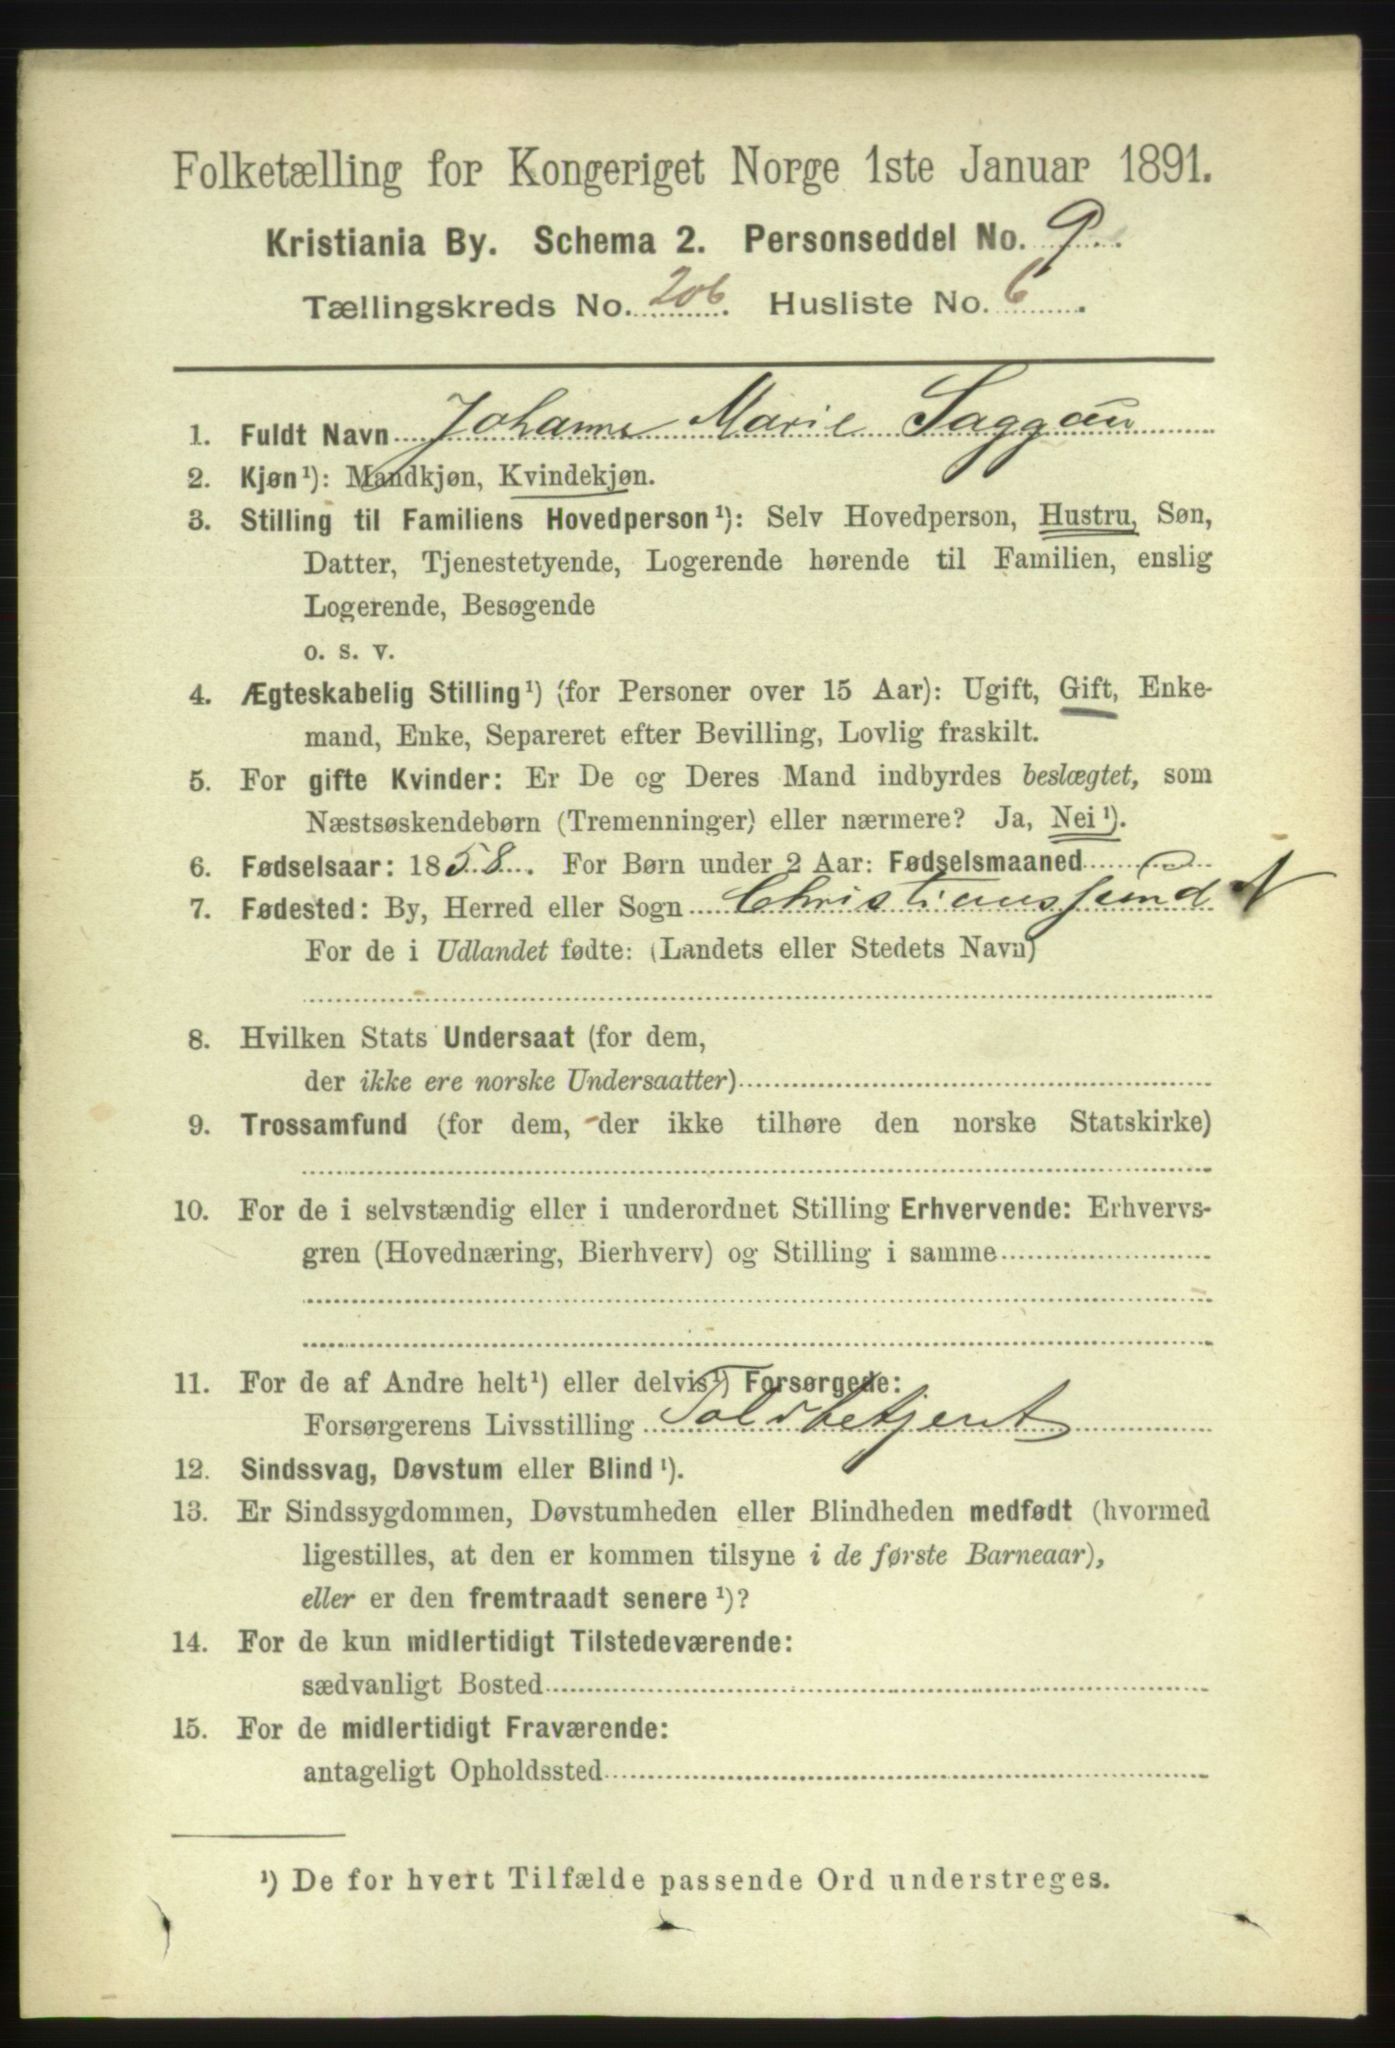 Folketælling for Kongeriget Norge 1ste Januar 1891.
Kristiania By. Schema 2. Personseddel No. 9.
Tællingskreds No. 206. Husliste No. 6.
1. Fuldt Navn Johanne Marie Saggau
2. Kjøn¹): Mandkjøn, Kvindekjøn.
3. Stilling til Familiens Hovedperson¹): Selv Hovedperson, Hustru, Søn,
Datter, Tjenestetyende, Logerende hørende til Familien, enslig
Logerende, Besøgende
o. s. v.
4. Ægteskabelig Stilling¹) (for Personer over 15 Aar): Ugift, Gift, Enke-
mand, Enke, Separeret efter Bevilling, Lovlig fraskilt.
5. For gifte Kvinder: Er De og Deres Mand indbyrdes beslægtet, som
Næstsøskendebørn (Tremenninger) eller nærmere? Ja, Nei¹).
6. Fødselsaar: 1858. For Børn under 2 Aar: Fødselsmaaned
7. Fødested: By, Herred eller Sogn Christianssund N
For de i Udlandet fødte: (Landets eller Stedets Navn)
8. Hvilken Stats Undersaat (for dem,
der ikke ere norske Undersaatter)
9. Trossamfund (for dem, der ikke tilhøre den norske Statskirke)
10. For de i selvstændig eller i underordnet Stilling Erhvervende: Erhvervs-
gren (Hovednæring, Bierhverv) og Stilling i samme
11. For de af Andre helt¹) eller delvis¹) Forsørgede:
Forsørgerens Livsstilling Toldbetjent
12. Sindssvag, Døvstum eller Blind¹).
13. Er Sindssygdommen, Døvstumheden eller Blindheden medfødt (hvormed
ligestilles, at den er kommen tilsyne i de første Barneaar),
eller er den fremtraadt senere¹)?
14. For de kun midlertidigt Tilstedeværende:
sædvanligt Bosted
15. For de midlertidigt Fraværende:
antageligt Opholdssted
¹) De for hvert Tilfælde passende Ord understreges.